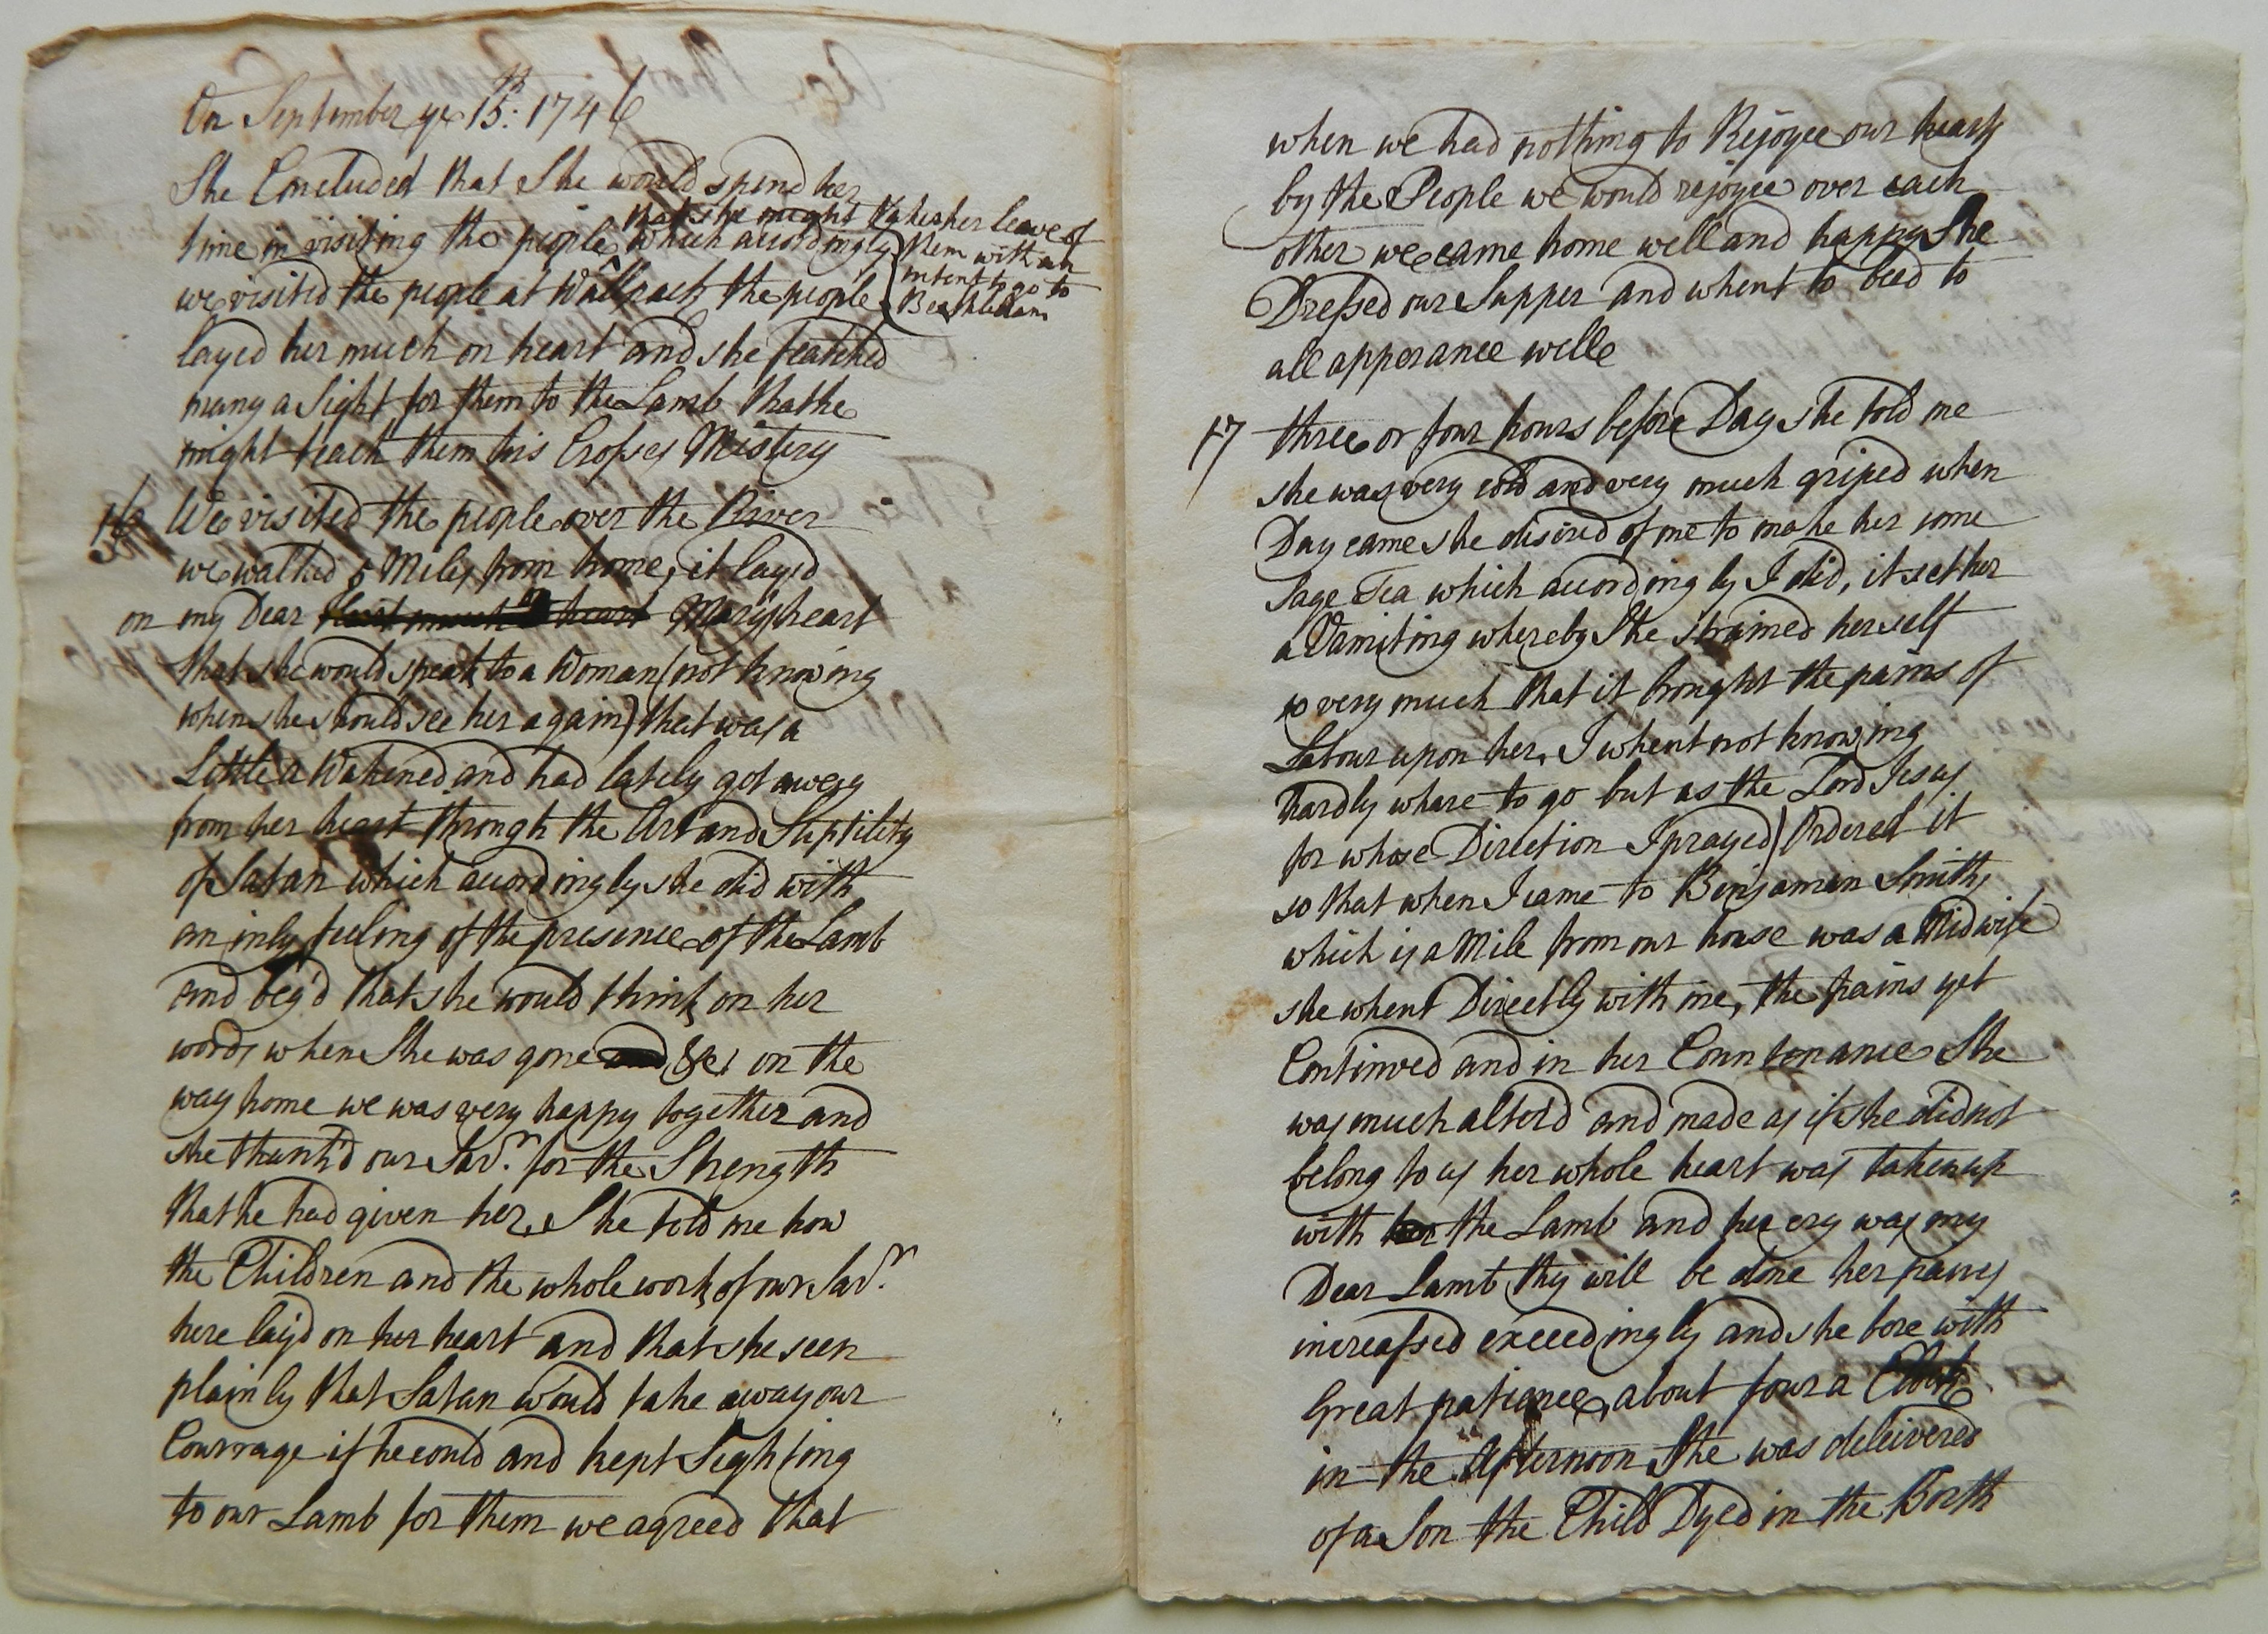 On September ye 15th: 1746
She Concluded that She would spend her
time in visiting the people that she might take her leave of them with an intent to go to Beethlehem which accordingly
we visited the people at Wallpack the people
layed her much on heart and she featched
many a Sight for them to the Lamb that he
might teach them his Crosses Mistery
16 We visited the people over the River
we walked 5 Miles from home, it layd
on my Dear Marys heart
that she would speak to a Woman (not knowing
when she should see her again) that was a
Little a Wakened and had lately got awery
from her heart through the Art and Suptility
of Satan which accordingly she did with
an inly feeling of the presence of the Lamb
and beg'd that she would think on her
words when She was gone and &c: on the
way home we was very happy together and
she thank'd our Savr. for the Strength
that he had given her, She told me how
the Children and the whole work of our Savr.
here lay'd on her heart and that she seen
plainly that Satan would take away our
Courrage if he could and kept Sighting
to our Lamb for them we agreed that
when we had nothing to Rejoyce our hearts
by the People we would rejoyce over each
other we came home well and happy She
Dressed our Supper and whent to beed to
all apperance welle
17 three or four hours before Day she told me
she was very cold and very much griped when
Day came she disired of me to make her some
Sage Tea which acordingly I did, it set her
a Vamiting whereby She strained herself
so very much that it brought the pains of
Labour upon her, I whent not knowing
hardly whare to go but as the Lord Jesus
for whose Direction I prayed) Ordered it
so that when I came to Benjamen Smiths
which is a Mile from our house was a Midwife
she whent Directly with me, the pains yet
Continued and in her Countenance She
was much alterd and made as if she did not
belong to us her whole heart was taken up
with her the Lamb and her cry was my
Dear Lamb thy will be done her pains
increassed exceedingly and she bore with
Great patience, about four a Clock
in the Afternoon She was deleivered
of a Son the Child Dyed in the Borth